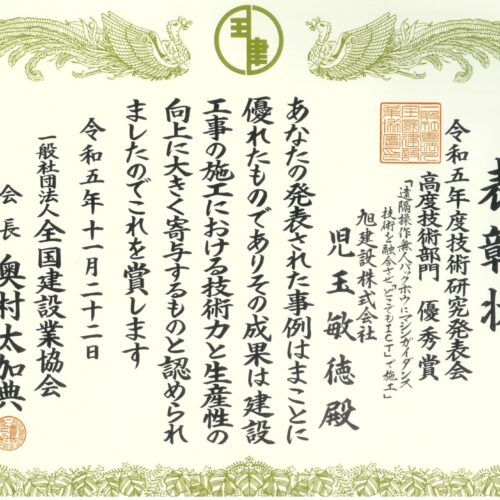 表彰状
令和五年度技術研究発表会
高度技術部門 優秀賞
「遠隔操作無人バックホウにマシンガイダンス
技術を融合させ、どこでもICT」で施工」
旭建設株式会社
児玉敏徳殿
あなたの発表された事例はまことに
優れたものでありその成果は建設
工事の施工における技術力と生産性の
向上に大きく寄与するものと認められ
ましたのでこれを賞します
令和五年十一月二十二日
一般社団法人全国建設業協会
会長 奥村太加典